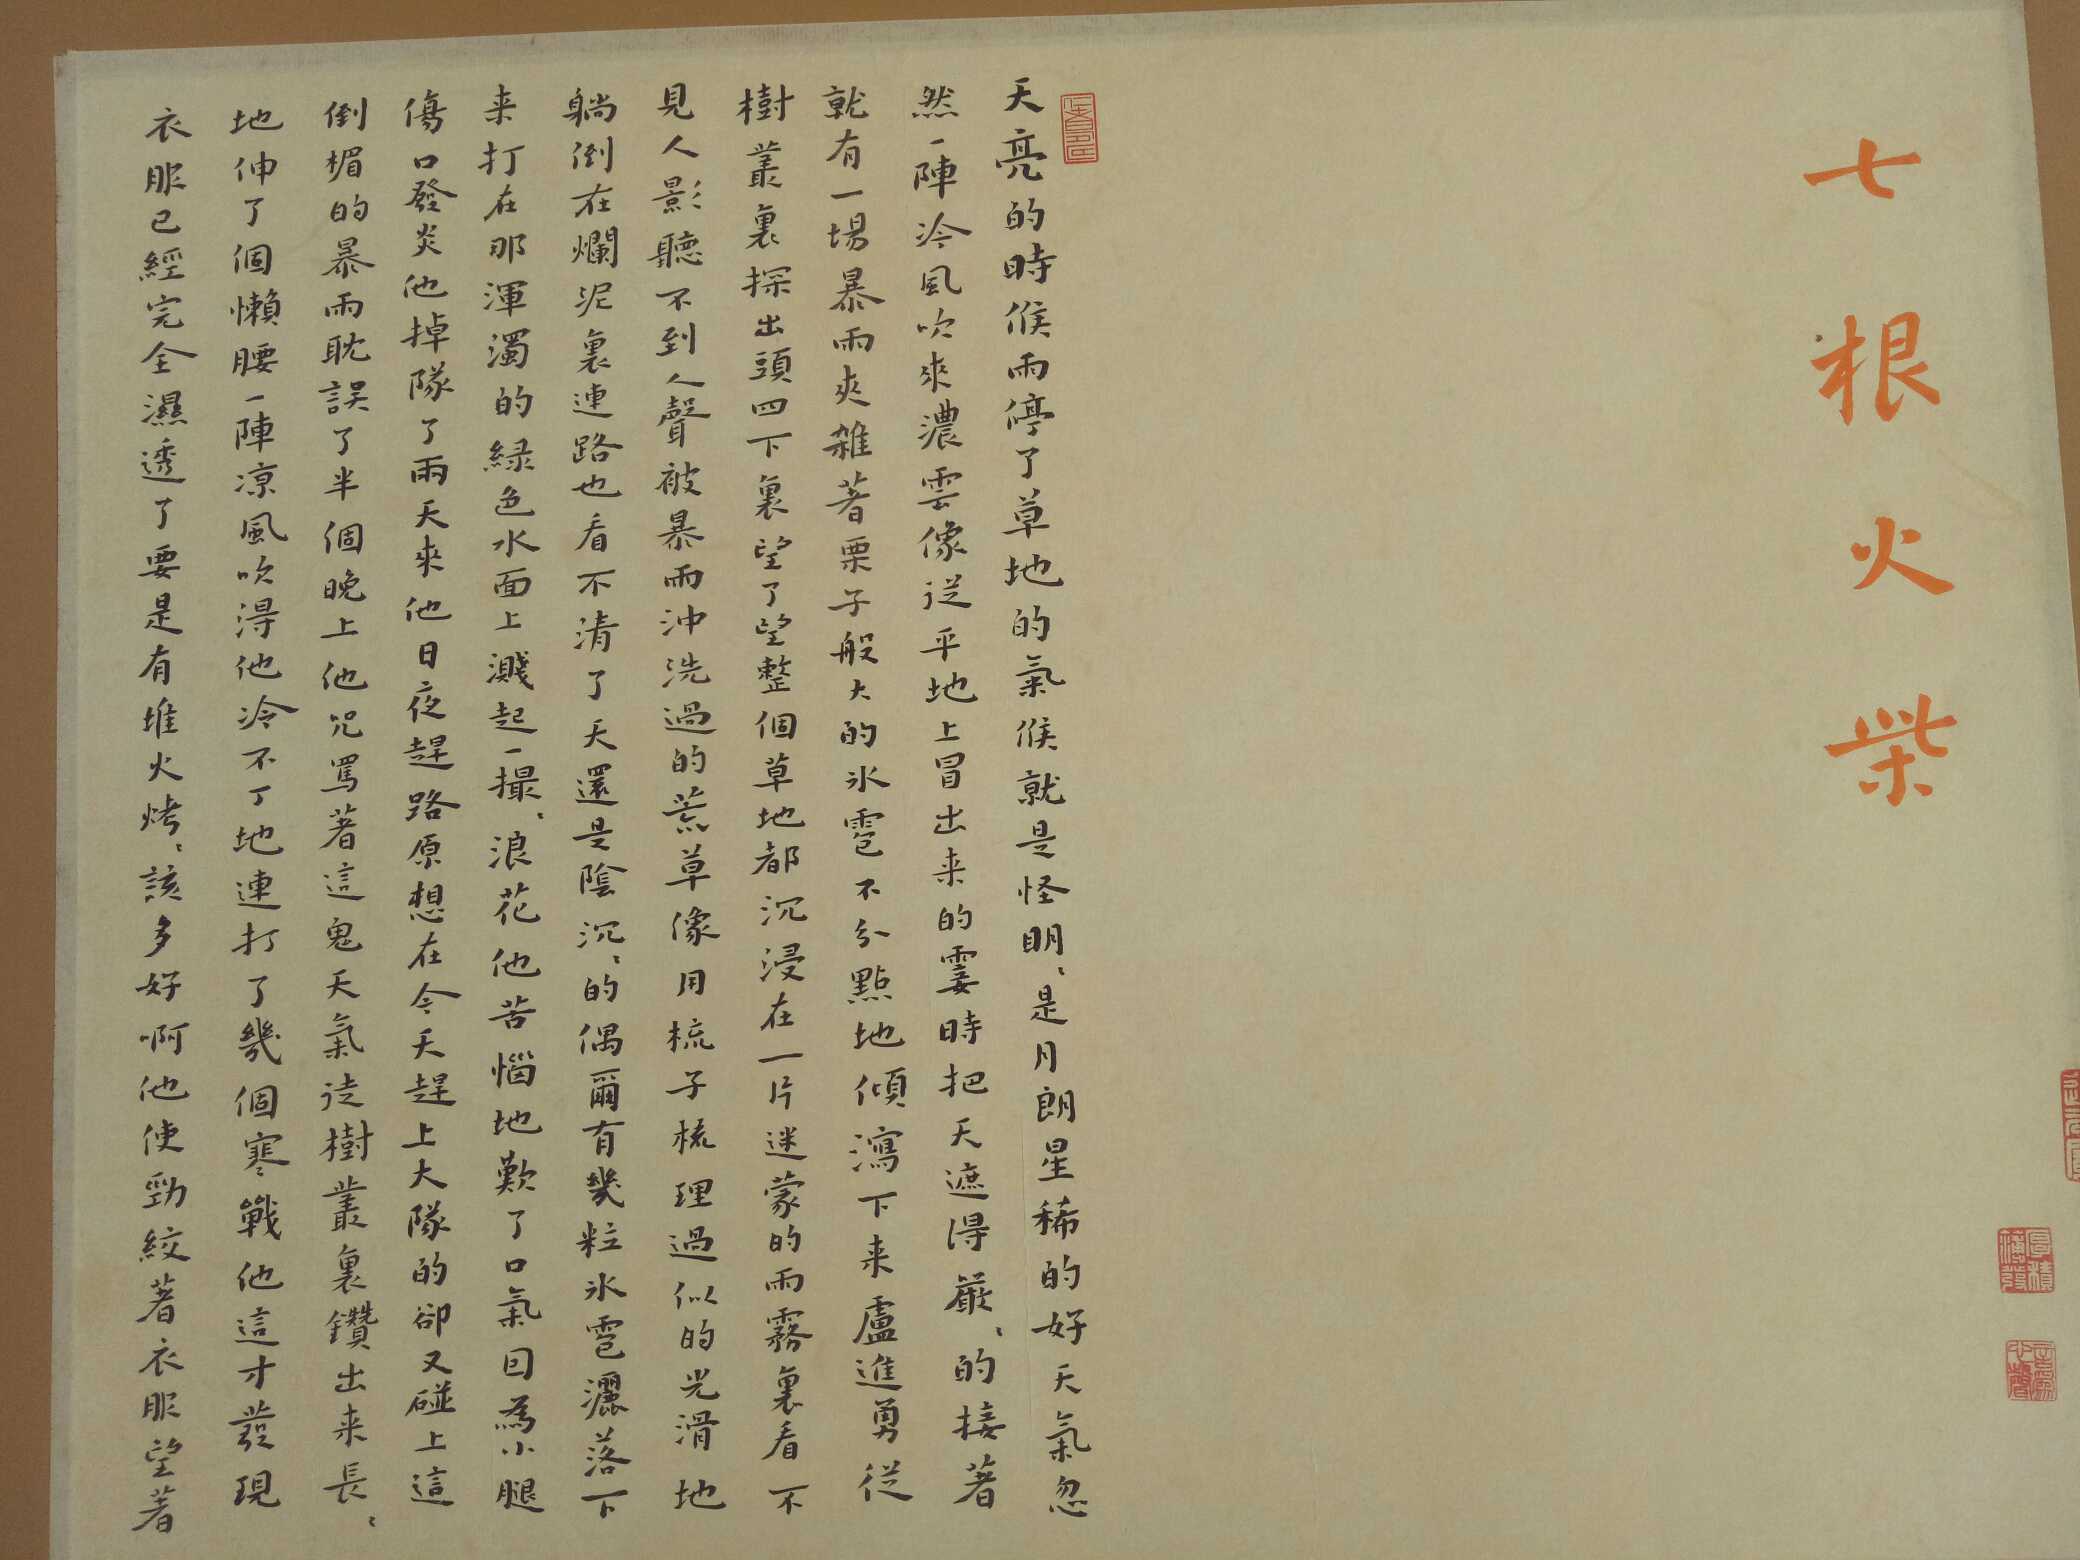 七根火柴
天亮的時候雨停了草地的氣候就是怪明ミ是月朗星稀的好天氣忽
然一陣冷風吹來濃雲像從平地上冒出来的霎時把天遮得嚴ミ的接著
就有一場暴雨夾雜著栗子般大的冰雹不分點地傾瀉下来盧進勇從
樹叢裏探出頭四下裏望了望整個草地都沉浸在一片迷蒙的雨霧裏看不
見人影聽不到人聲被暴雨沖洗過的荒草像用梳子梳理過似的光滑地
躺倒在爛泥裏連路也看不清了天還是陰沉ミ的偶爾有幾粒冰雹灑落下
来打在那渾濁的緑色水面上濺起一撮ミ浪花他苦惱地歎了口氣因為小腿
傷口發炎他掉隊了兩天來他日夜趕路原想在今天趕上大隊的卻又碰上這
倒楣的暴雨耽誤了半個晚上他咒罵著這鬼天氣從樹叢裏鑽出来長ミ
地伸了個懶腰一陣凉風吹得他冷不丁地連打了幾個寒戰他這才發現
衣服已經完全濕透了要是有堆火烤ミ該多好啊他使勁絞著衣服望著